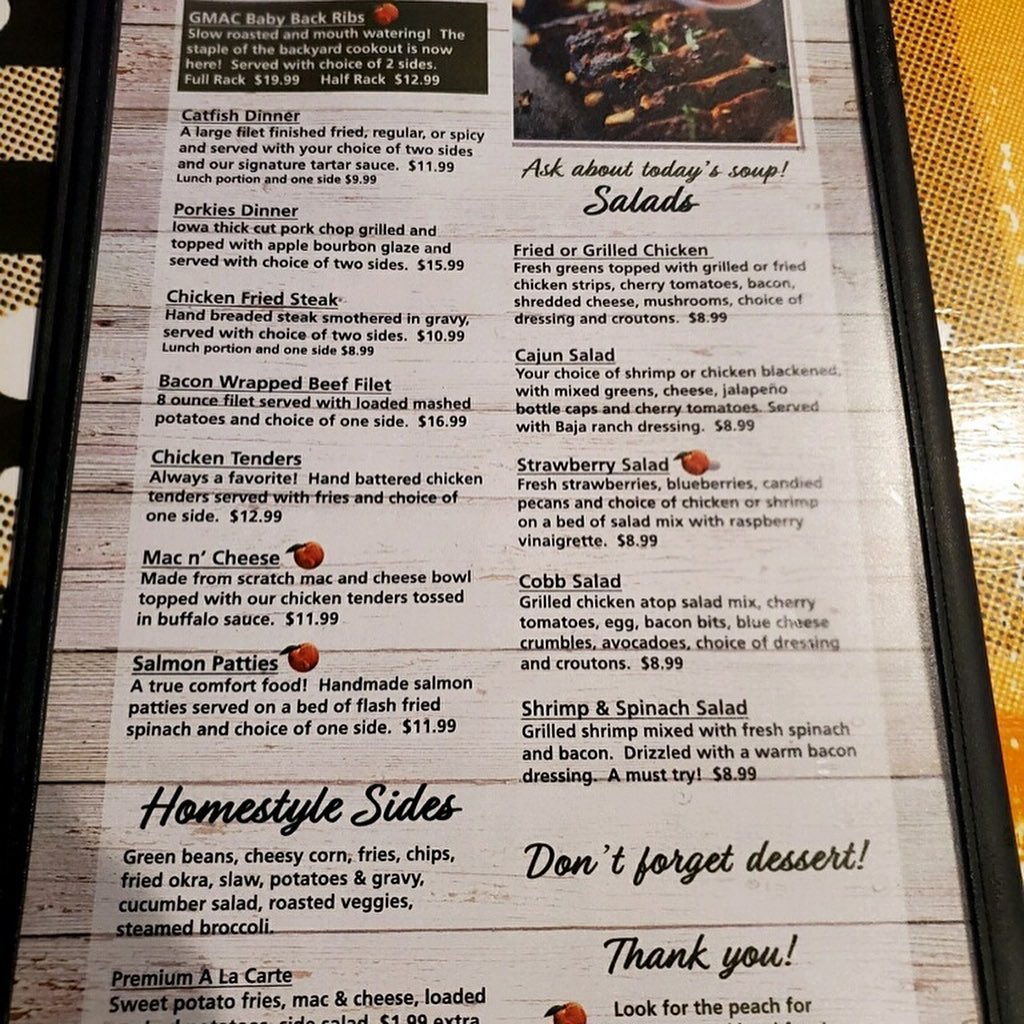 GMAC Baby Back Ribs
Slow roasted and mouth watering! The
staple of the backyard cookout is now
here! Served with choice of 2 sides.
Full Rack $19.99 Half Rack $12.99
Catfish Dinner
A large filet finished fried, regular, or spicy
and served with your choice of two sides
and our signature tartar sauce. $11.99
Lunch portion and one side $9.99
Porkies Dinner
Iowa thick cut pork chop grilled and
topped with apple bourbon glaze and
served with choice of two sides. $15.99
Chicken Fried Steak
Hand breaded steak smothered in gravy,
served with choice of two sides. $10.99
Lunch portion and one side $8.99
Bacon Wrapped Beef Filet
8 ounce filet served with loaded mashed
potatoes and choice of one side. $16.99
Chicken Tenders
Always a favorite! Hand battered chicken
tenders served with fries and choice of
one side. $12.99
Mac n' Cheese
Made from scratch mac and cheese bowl
topped with our chicken tenders tossed
in buffalo sauce. $11.99
Salmon Patties
A true comfort food! Handmade salmon
patties served on a bed of flash fried
spinach and choice of one side. $11.99
Homestyle Sides
Green beans, cheesy corn, fries, chips,
fried okra, slaw, potatoes & gravy,
cucumber salad, roasted veggies,
steamed broccoli.
Premium A La Carte
Sweet potato fries, mac & cheese, loaded
potatoes, side salad $1.99 extra
Ask about today's soup!
Salads
Fried or Grilled Chicken
Fresh greens topped with grilled or fried
chicken strips, cherry tomatoes, bacon,
shredded cheese, mushrooms, choice of
dressing and croutons. $8.99
Cajun Salad
Your choice of shrimp or chicken blackened,
with mixed greens, cheese, jalapeño
bottle caps and cherry tomatoes. Served
with Baja ranch dressing. $8.99
Strawberry Salad
Fresh strawberries, blueberries, candied
pecans and choice of chicken or shrimp
on a bed of salad mix with raspberry
vinaigrette. $8.99
Cobb Salad
Grilled chicken atop salad mix, cherry
tomatoes, egg, bacon bits, blue cheese
crumbles, avocadoes, choice of dressing
and croutons. $8.99
Shrimp & Spinach Salad
Grilled shrimp mixed with fresh spinach
and bacon. Drizzled with a warm bacon
dressing. A must try! $8.99
Don't forget dessert!
Thank you!
Look for the peach for